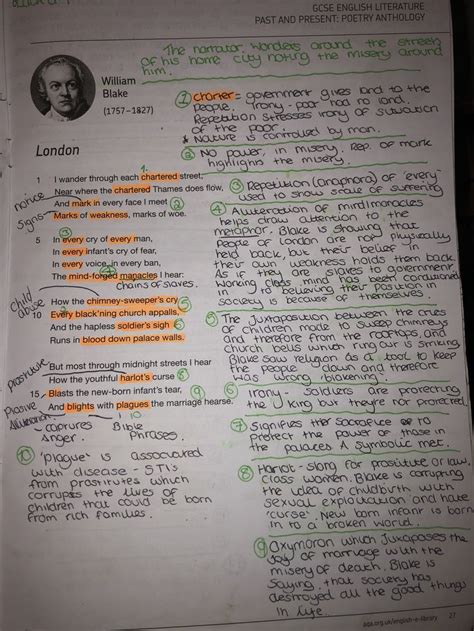 GCSE ENGLISH LITERATURE
PAST AND PRESENT: POETRY ANTHOLOGY
The narrator wonders around the streets
of his home city noting the misery around
him.
William
Blake
(1757–1827)
① charter = government gives land to the
people. Irony - poor had no land.
Repetition stresses irony of situation
of the poor.
* Nature is controlled by man.
② No power, in misery. Rep. of mark
highlights the misery.
London
1.
1 I wander through each chartered street,
Near where the chartered Thames does flow,
And mark in every face I meet ②
Marks of weakness, marks of woe.
notice
signs
③ Repetition (anaphora) of 'every'
used to show scale of suffering
③
5 In every cry of every man,
In every infant's cry of fear,
In every voice, in every ban,
The mind-forged manacles I hear:
④
chains of slaves.
④ Alliteration of mind/manacles
helps draw attention to the
metaphor. Blake is showing that
people of London are not physically
held back, but their belief in
their own weakness holds them back.
As if they are slaves to government
Working class mind has been conditioned
in to believing their position in
society is because of themselves.
child
abuse
How the chimney-sweeper's cry
10 Every black'ning church appalls, ⑤
And the hapless soldier's sigh ⑥
Runs in blood down palace walls. ⑦
⑤ The juxtaposition between the cries
of children made to sweep chimneys
and therefore from the rooftops, and
church bells which ring our is striking.
Blake saw religion as a tool to keep
the people down and therefore
was wrong 'blakening'.
prostitute
But most through midnight streets I hear
How the youthful harlot's curse ⑧
15 Blasts the new-born infant's tear, ⑨
And blights with plagues the marriage hearse.
⑥
Irony - soldiers are protecting
the king but they're not protected.
Plosive
Alliteration
captures
Anger.
10
Bible
Phrases.
⑦ Signifies their sacrifice to
protect the power of those in
the palaces. A symbolic met.
⑩ 'plague' is associated
with disease - STIs
from prostitutes which
corrupts the lives of
children that could be born
from rich families.
⑧ Harlot - slang for prostitute or low
class women. Blake is corrupting
the idea of childbirth with
sexual exploitation and hate
'curse'. New born infant is born
in to a broken world.
⑨ Oxymoron which juxtaposes the
joy of marriage with the
misery of death. Blake is
saying that society has
destroyed all the good things
in life.
aqa.org.uk/english-e-library 27